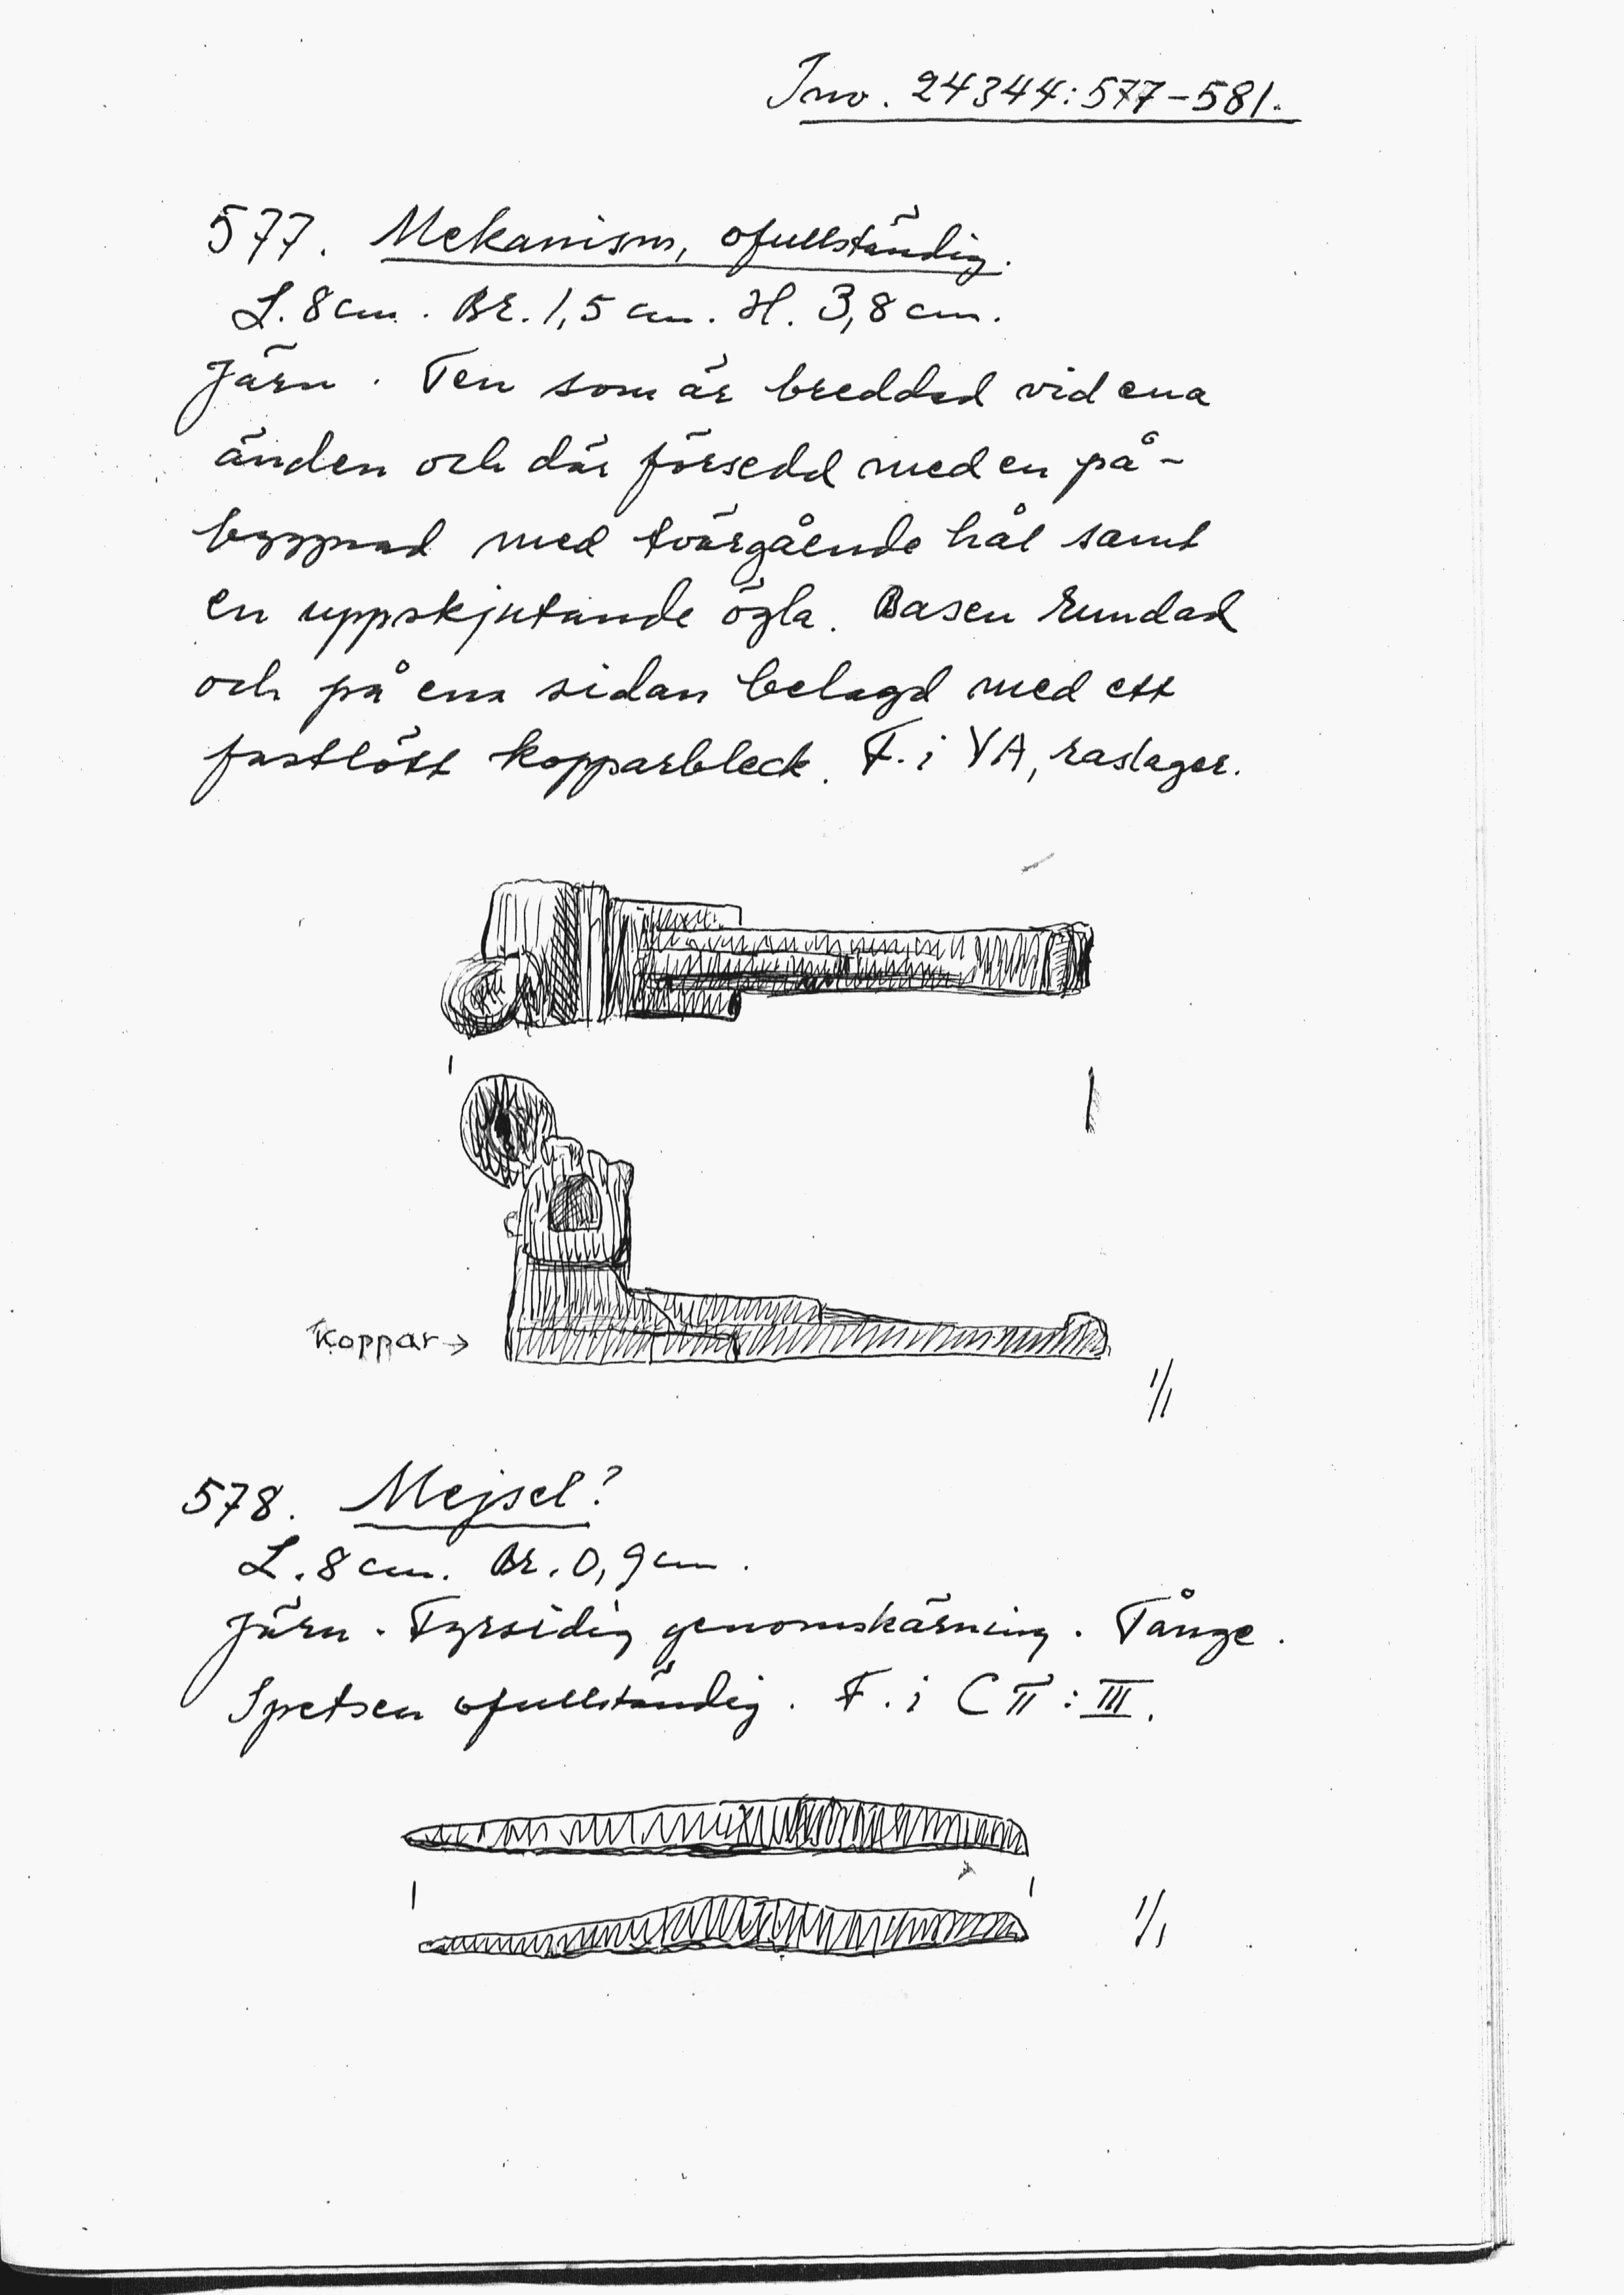 Inv. 24344:577-581.
577. Mekanism, ofullständig.
L. 8 cm. Br. 1,5 cm. H. 3,8 cm.
Järn. Ten som är breddad vid ena
änden och där försedd med en på-
byggnad med tvärgående hål samt
en uppskjutande ögla. Basen rundad
och på ena sidan belagd med ett
fastlött kopparbleck. F. i VA, raslager.
koppar→
1/1
578. Mejsel?
L. 8 cm. Br. 0,9 cm.
Järn. Fyrsidig genomskärning. Tånge.
Spetsen ofullständig. F. i C II:III.
1/1